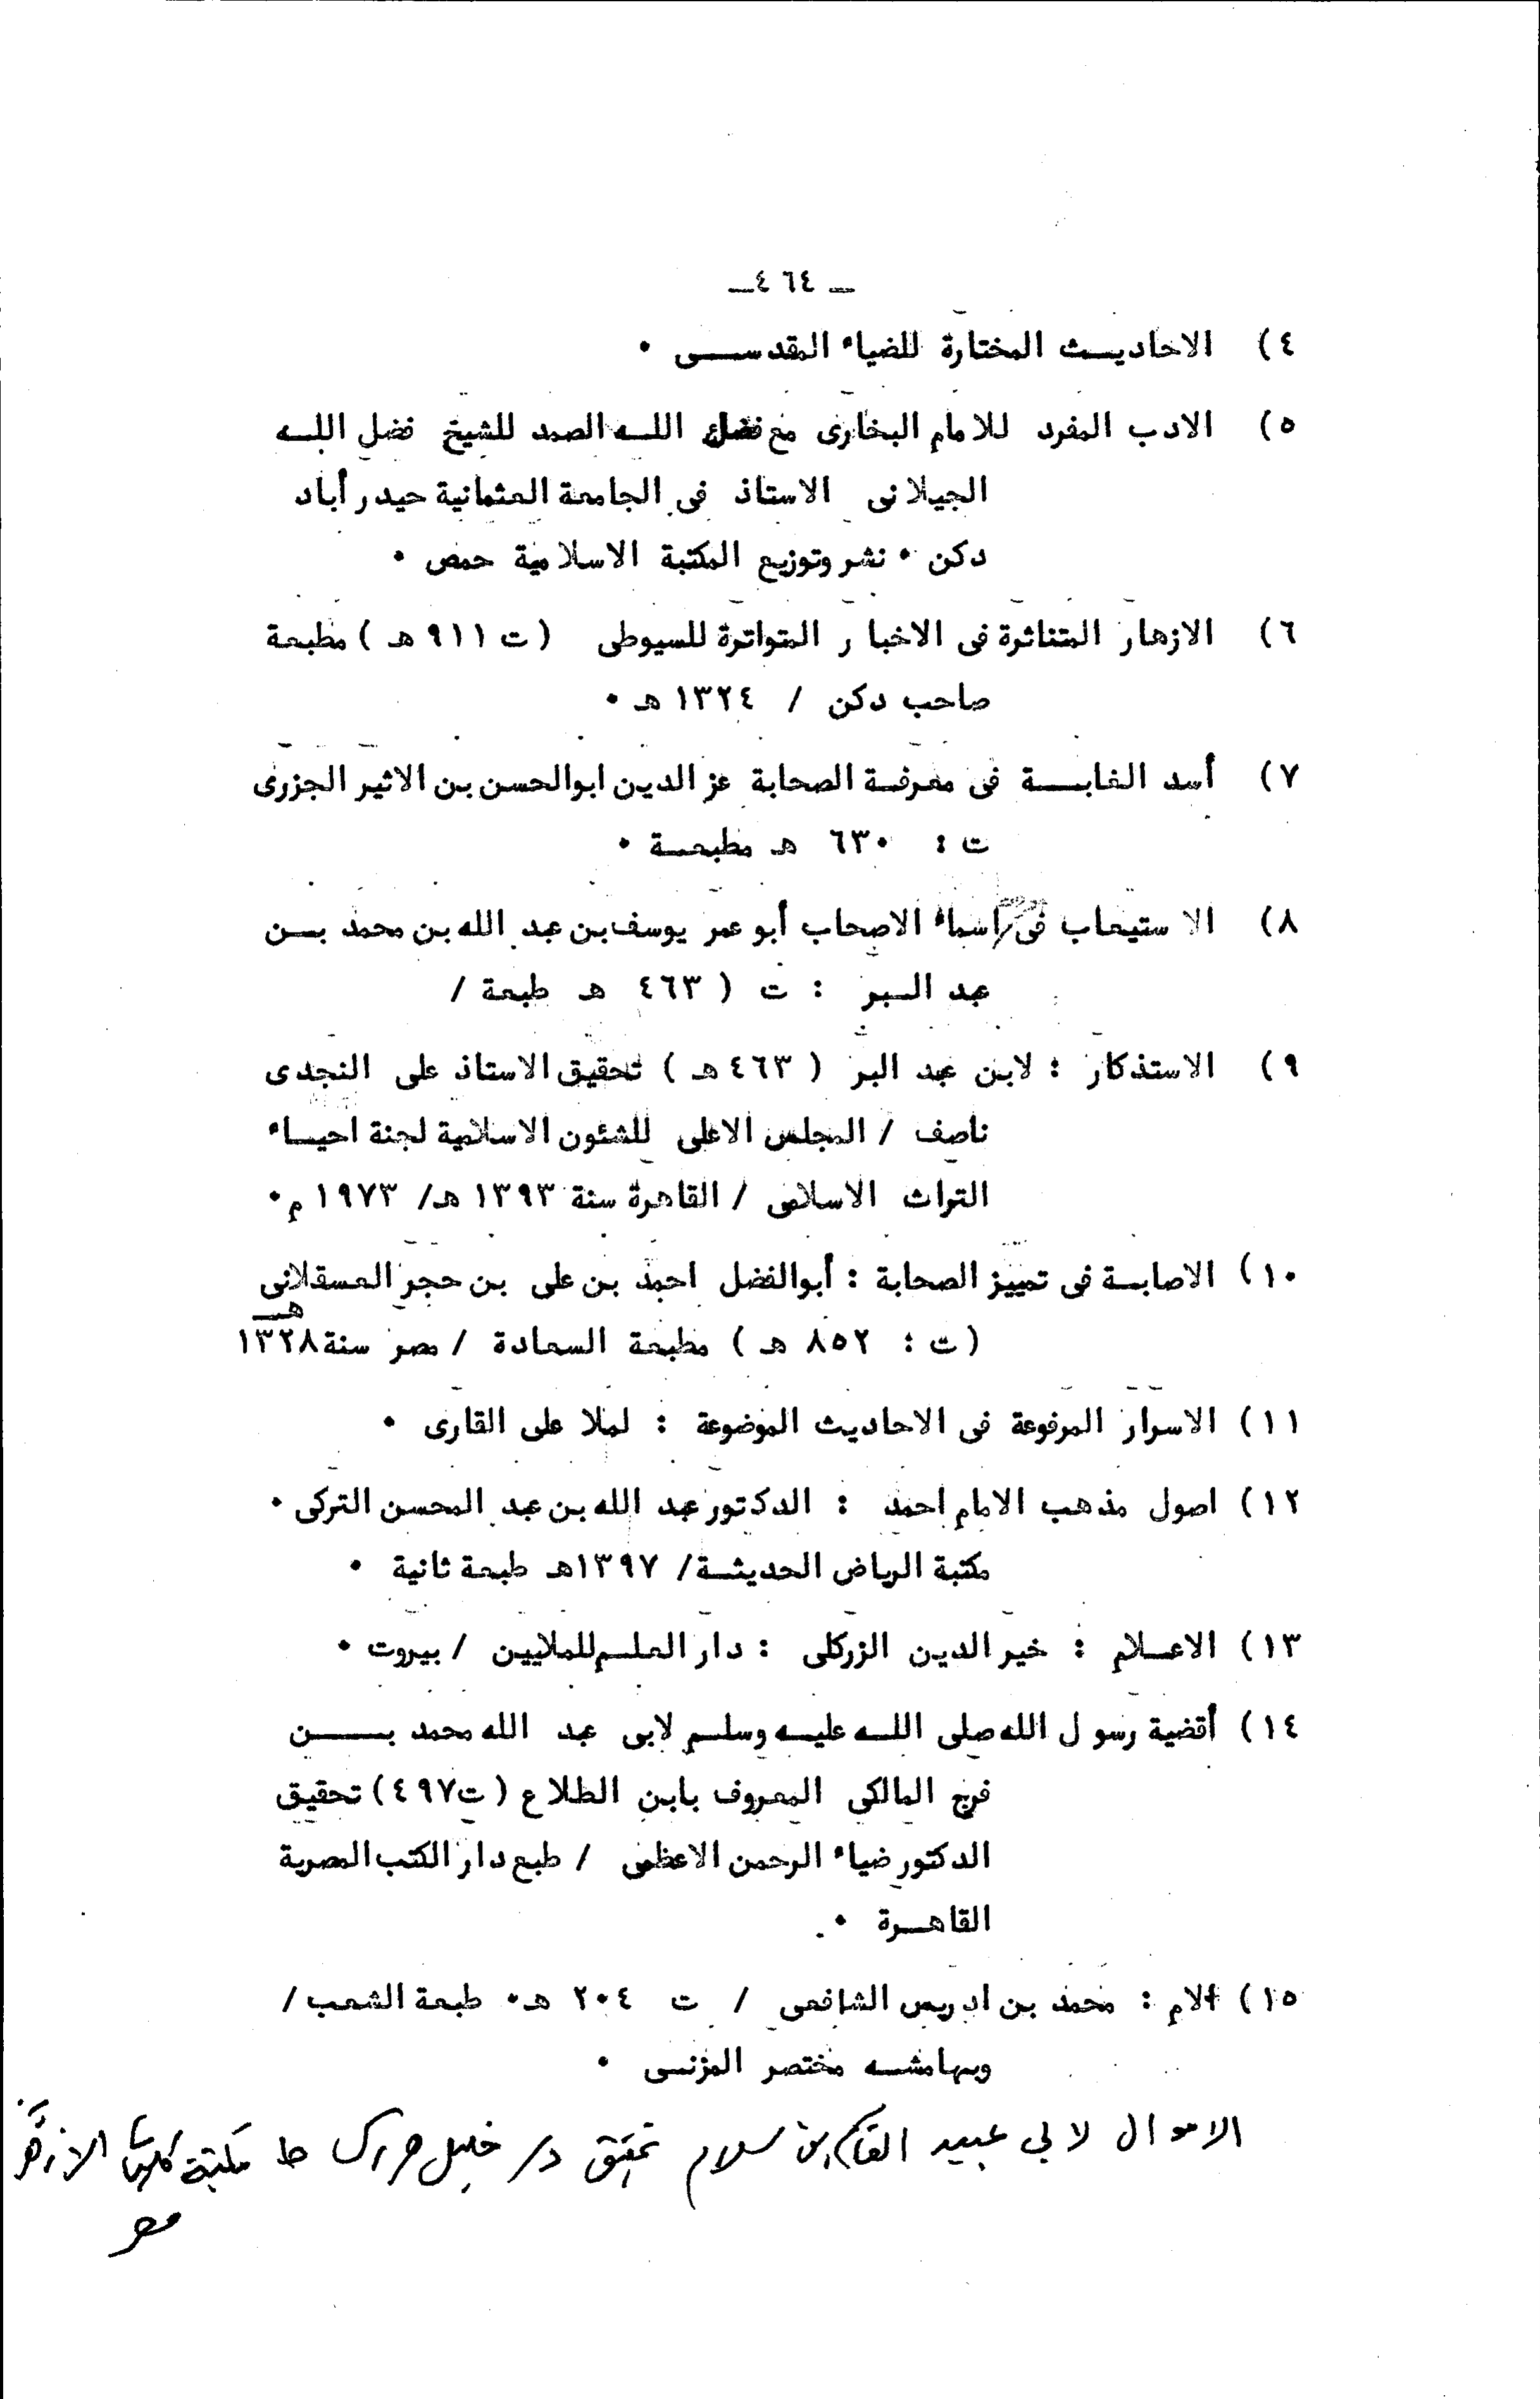 ـ ٤٦٤ـ
٤) الاحاديـــث المختارة للضياء المقدســـى ٠
٥) الادب المفرد للامام البخارى مع فضل اللــه الصمد للشيخ فضل اللــه
الجيلانى الاستاذ فى الجامعة العثمانية حيدر أباد
دكن ٠ نشر وتوزيع المكتبة الاسلامية حمص ٠
٦) الازهار المتناثرة فى الاخبار المتواترة للسيوطى (ت ٩١١ هـ) مطبعة
صاحب دكن / ١٣٢٤ هـ ٠
٧) أسد الغابـــة فى معرفـة الصحابة عز الدين ابوالحسن بن الاثير الجزرى
ت : ٦٣٠ هـ مطبعــة ٠
٨) الاستيعاب فى اسماء الاصحاب أبو عمر يوسف بن عبد الله بن محمد بــن
عبد الــبر : ت ( ٤٦٣ هـ طبعة /
٩) الاستذكار : لابن عبد البر ( ٤٦٣ هـ ) تحقيق الاستاذ على النجدى
ناصف / المجلس الاعلى للشئون الاسلامية لجنة احيــاء
التراث الاسلامى / القاهرة سنة ١٣٩٣ هـ/ ١٩٧٣ م٠
١٠) الاصابــة فى تمييز الصحابة : أبوالفضل احمد بن على بن حجر العسقلانى
(ت : ٨٥٢ هـ ) مطبعة السعادة / مصر سنة ١٣٢٨ هـ
١١) الاسرار المرفوعة فى الاحاديث الموضوعة : لملا على القارى ٠
١٢) اصول مذهب الامام احمد : الدكتور عبد الله بن عبد المحسن التركى ٠
مكتبة الرياض الحديثــة/ ١٣٩٧هـ طبعة ثانية ٠
١٣) الاعــلام : خير الدين الزركلى : دار العلــم للملايين / بيروت ٠
١٤) أقضية رسول الله صلى اللــه عليــه وسلــم لابى عبد الله محمد بــــن
فرج المالكى المعروف بابن الطلاع (ت٤٩٧) تحقيق
الدكتور ضياء الرحمن الاعظمى / طبع دار الكتب المصرية
القاهــرة ٠
١٥) الام : محمد بن ادريس الشافعى / ت ٢٠٤ هـ٠ طبعة الشعب /
وبهامشــه مختصر المزنــى ٠
الاموال لابي عبيد القاسم بن سلام تحقيق د/ خليل هراس ط مكتبة كليات الازهر
مصر